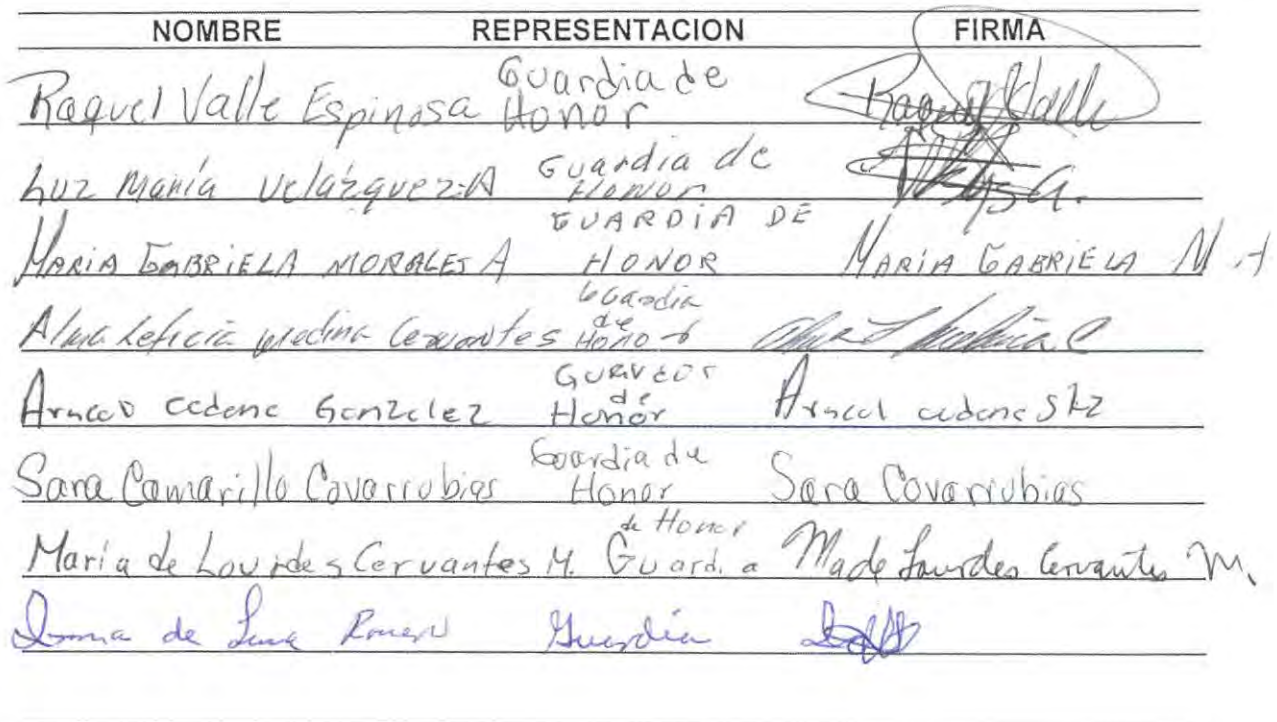 NOMBRE REPRESENTACION FIRMA
Raquel Valle Espinosa Guardia de Honor Raquel Valle
Luz María Velázquez A Guardia de Honor
MARIA GABRIELA MORALES A GUARDIA DE HONOR MARIA GABRIELA M A
Alma Leticia medina Cervantes Guardia de Honor
cedano Gonzalez de Honor
Sara Camarillo Covarrubias Guardia de Honor Sara Covarrubias
María de Lourdes Cervantes M. Guardia de Honor Ma de Lourdes Cervantes M.
de Luna Romero Guardia